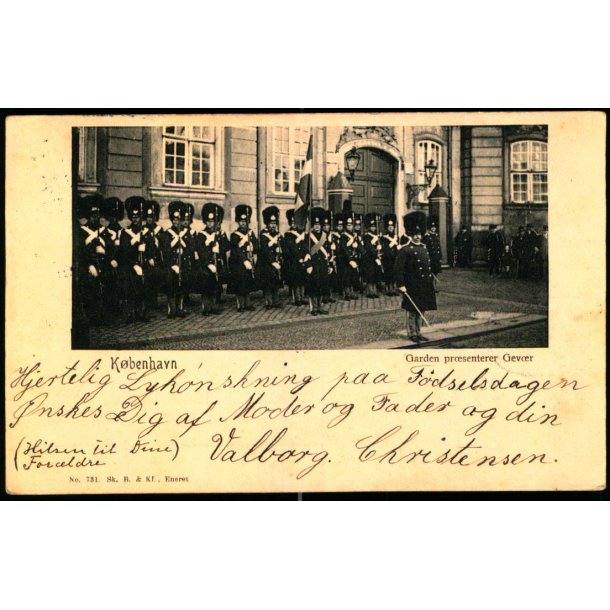 København
Garden præsenterer Gevær
Hjertelig Lykónskning paa Födselsdagen
Ønskes Dig af Moder og Fader og din
(Hilsen til Dine)
Forældre
Valborg. Christensen.
No. 731 Sk. B. & Kf., Eneret